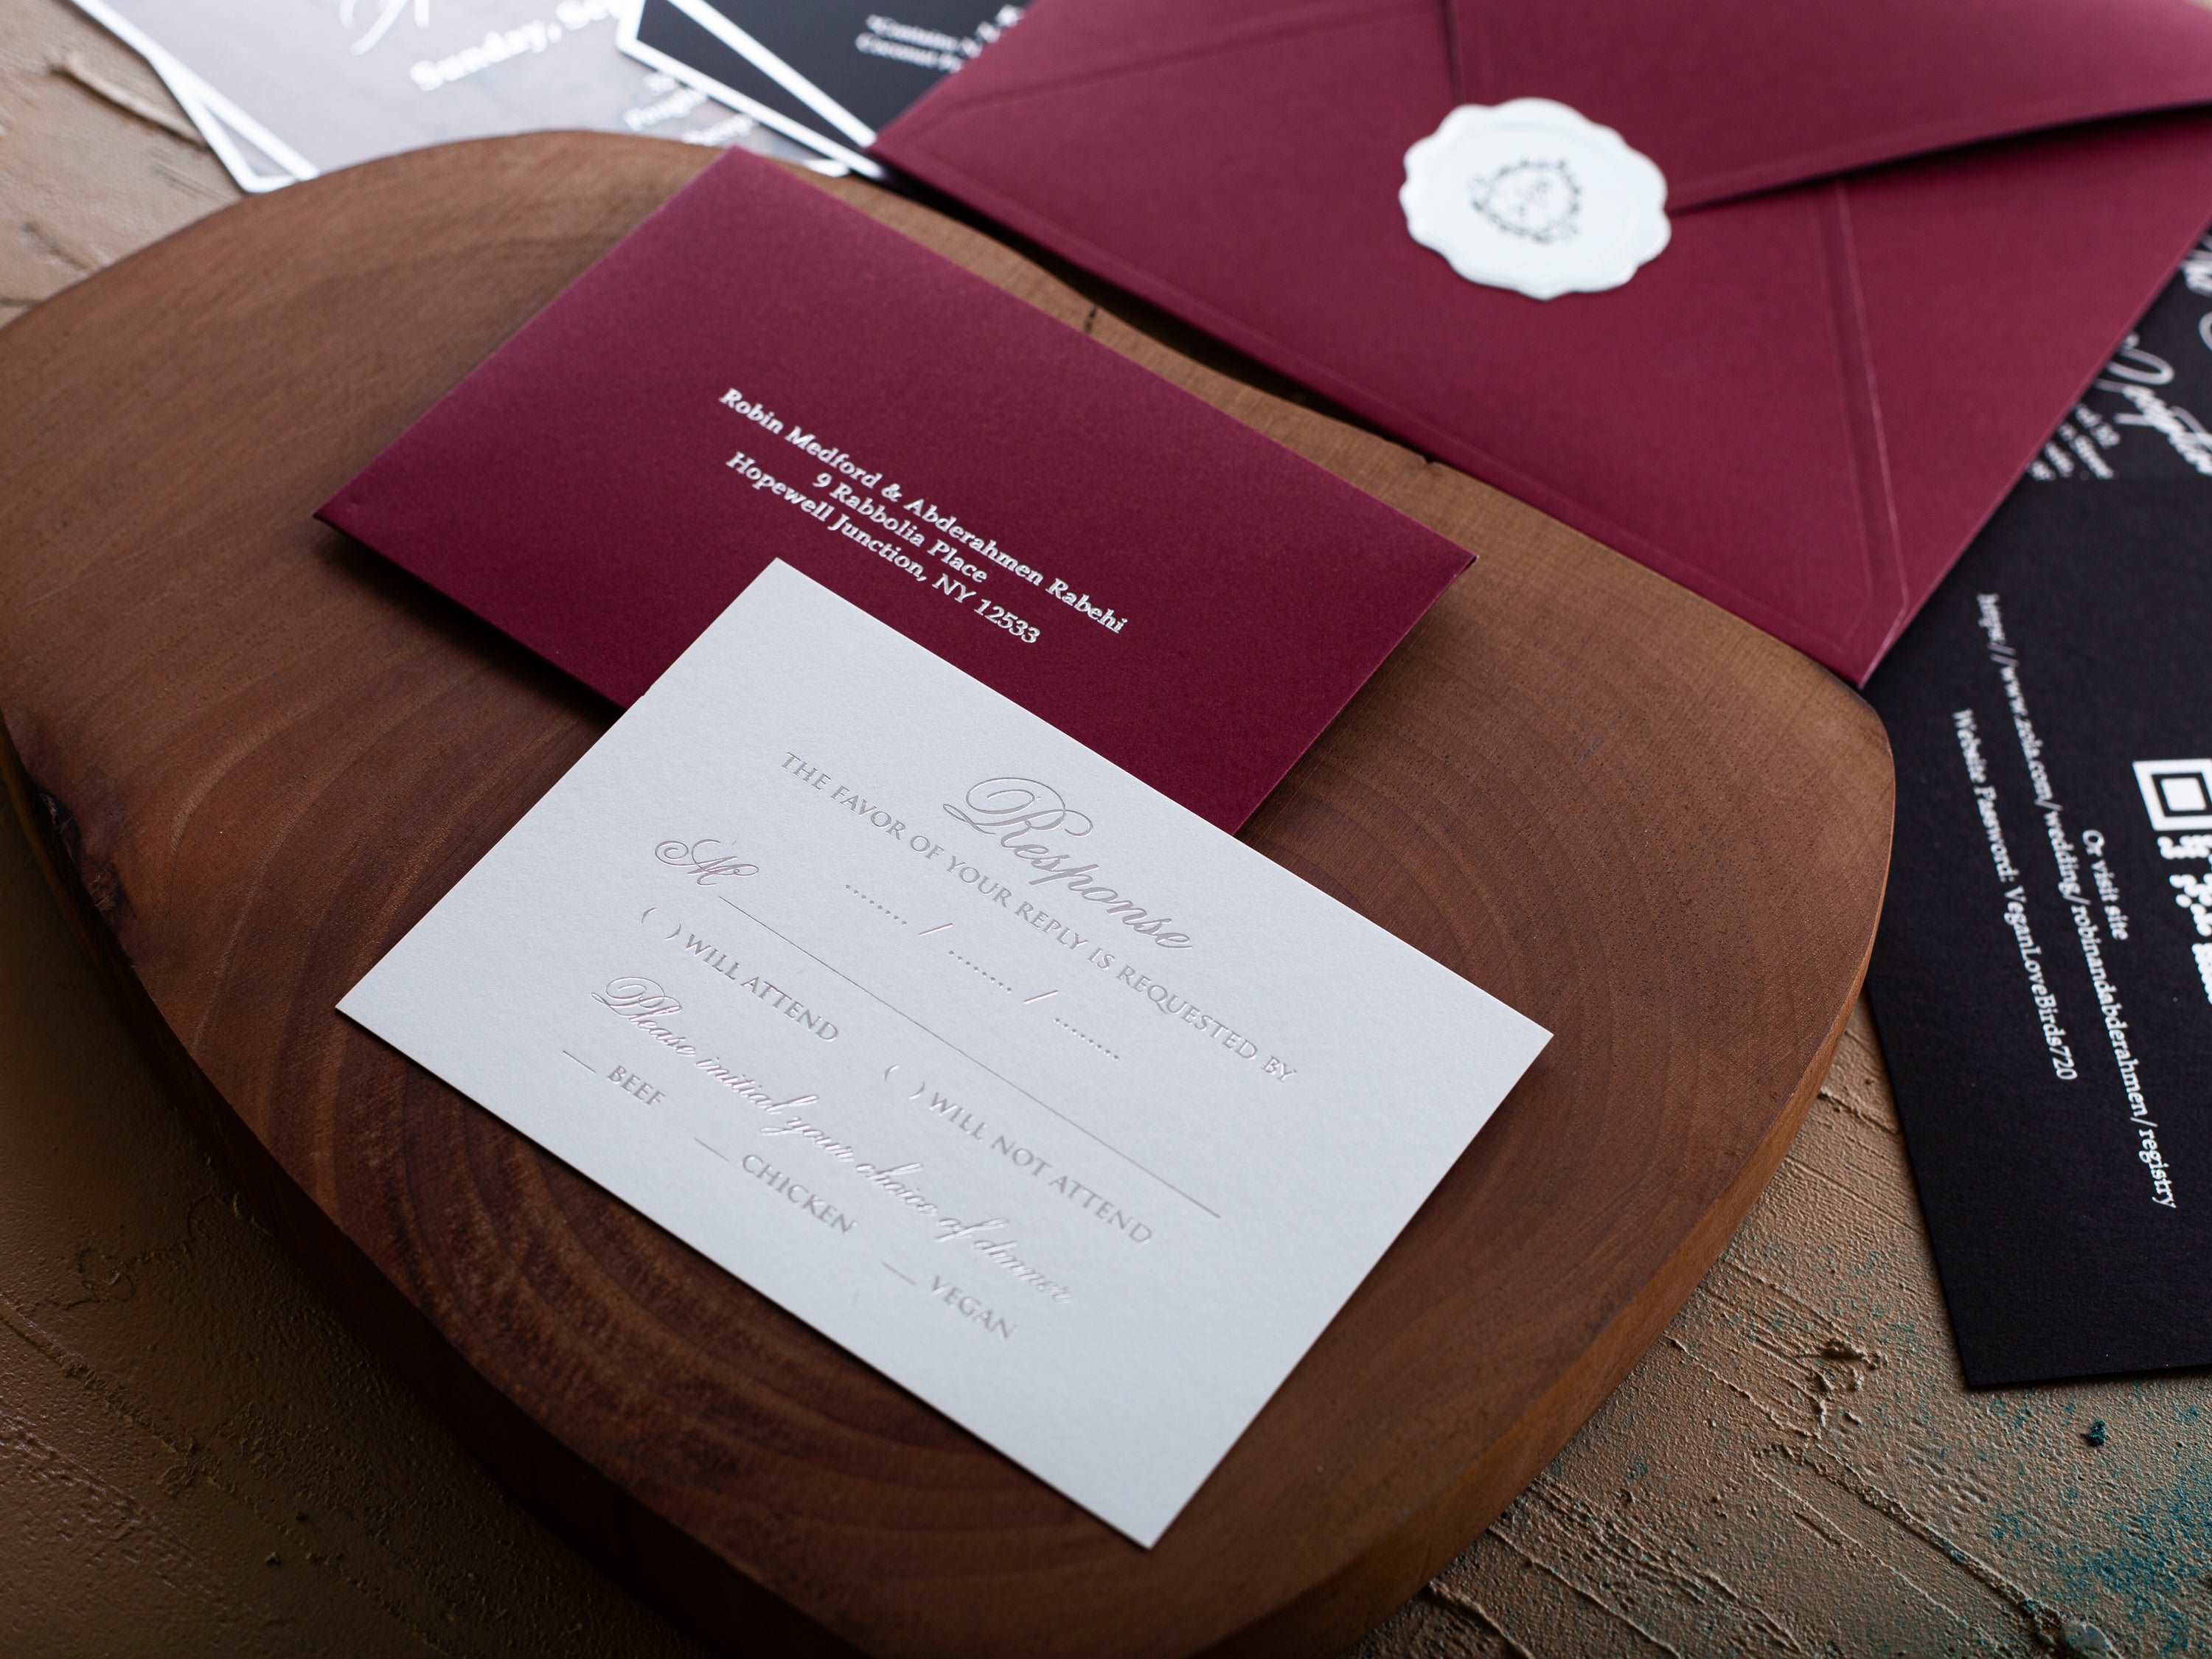 Sunday,
Robin Medford & Abderahmen Rabehi
9 Rabbolia Place
Hopewell Junction, NY 12533
Response
THE FAVOR OF YOUR REPLY IS REQUESTED BY
......... / ......... / .........
M
( ) WILL ATTEND ( ) WILL NOT ATTEND
Please initial your choice of dinner
__ BEEF __ CHICKEN __ VEGAN
Or visit site
https://www.zola.com/wedding/robinandabderahmen/registry
Website Password: VeganLoveBirds720